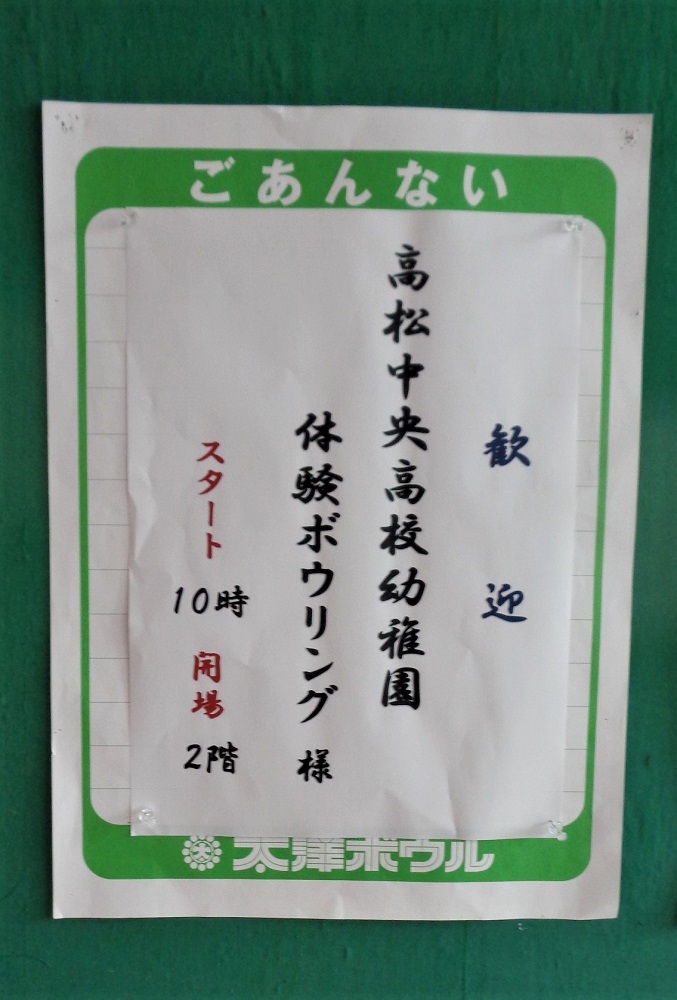 ごあんない
歓迎
高松中央高校幼稚園
体験ボウリング 様
スタート 10時 開場 2階
太洋ボウル